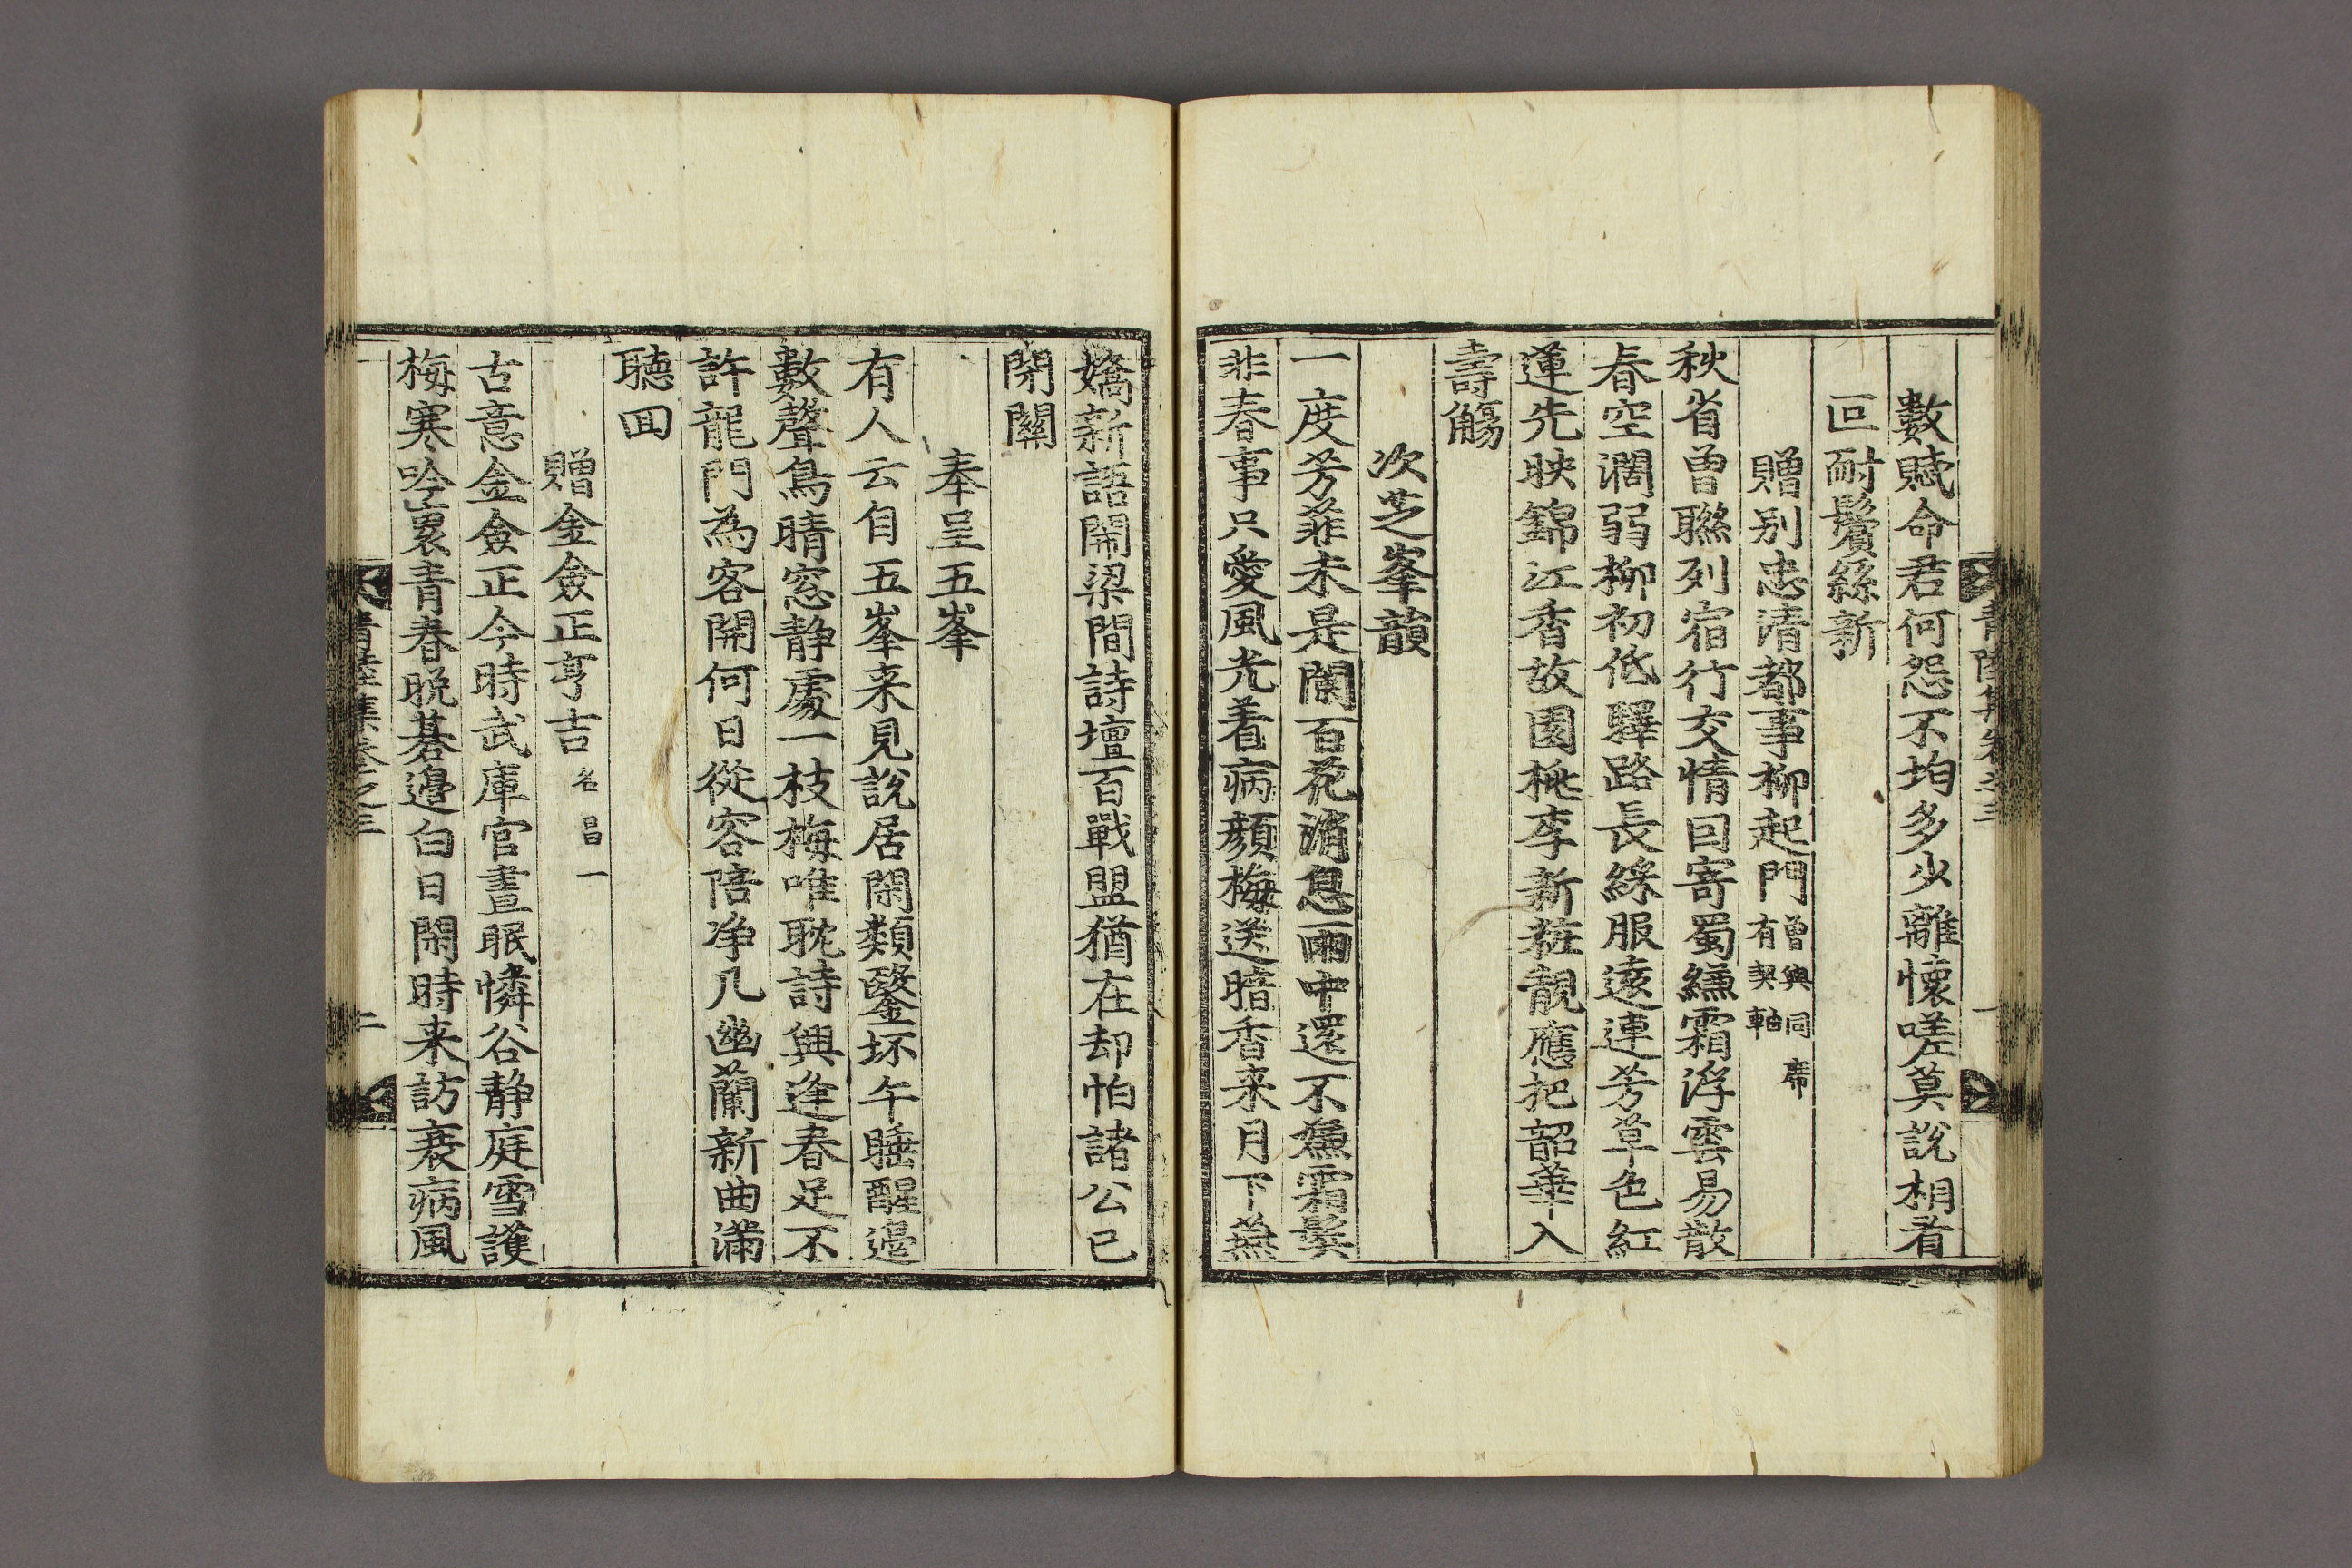 青陸集卷之三
一
數賦命君何怨不均多少離懷嗟莫說相看
叵耐鬢絲新
贈別忠淸都事柳起門 曾與同席有契軸
秋省曾聯列宿行交情回寄蜀縑霜浮雲易散
春空濶弱柳初低驛路長綵服遠連芳草色紅
蓮先映錦江香故園桃李新粧靚應把韶華入
壽觴
次芝峯韻
一度芳菲未是闌百花消息雨中還不嫌霜鬂
非春事只愛風光着病顏梅送暗香来月下燕
嬌新語閙梁間詩壇百戰盟猶在却怕諸公已
閉關
奉呈五峯
有人云自五峯来見說居閑類鑿坏午睡醒邊
數聲鳥晴窓静處一枝梅唯耽詩興逢春足不
許龍門為客開何日從容陪净几幽蘭新曲滿
聽囬
贈金僉正亨吉 名昌一
古意金僉正今時武庫官晝眠憐谷静庭雪護
梅寒吟裏靑春晩碁邊白日閑時来訪衰病風
青陸集卷之三
二